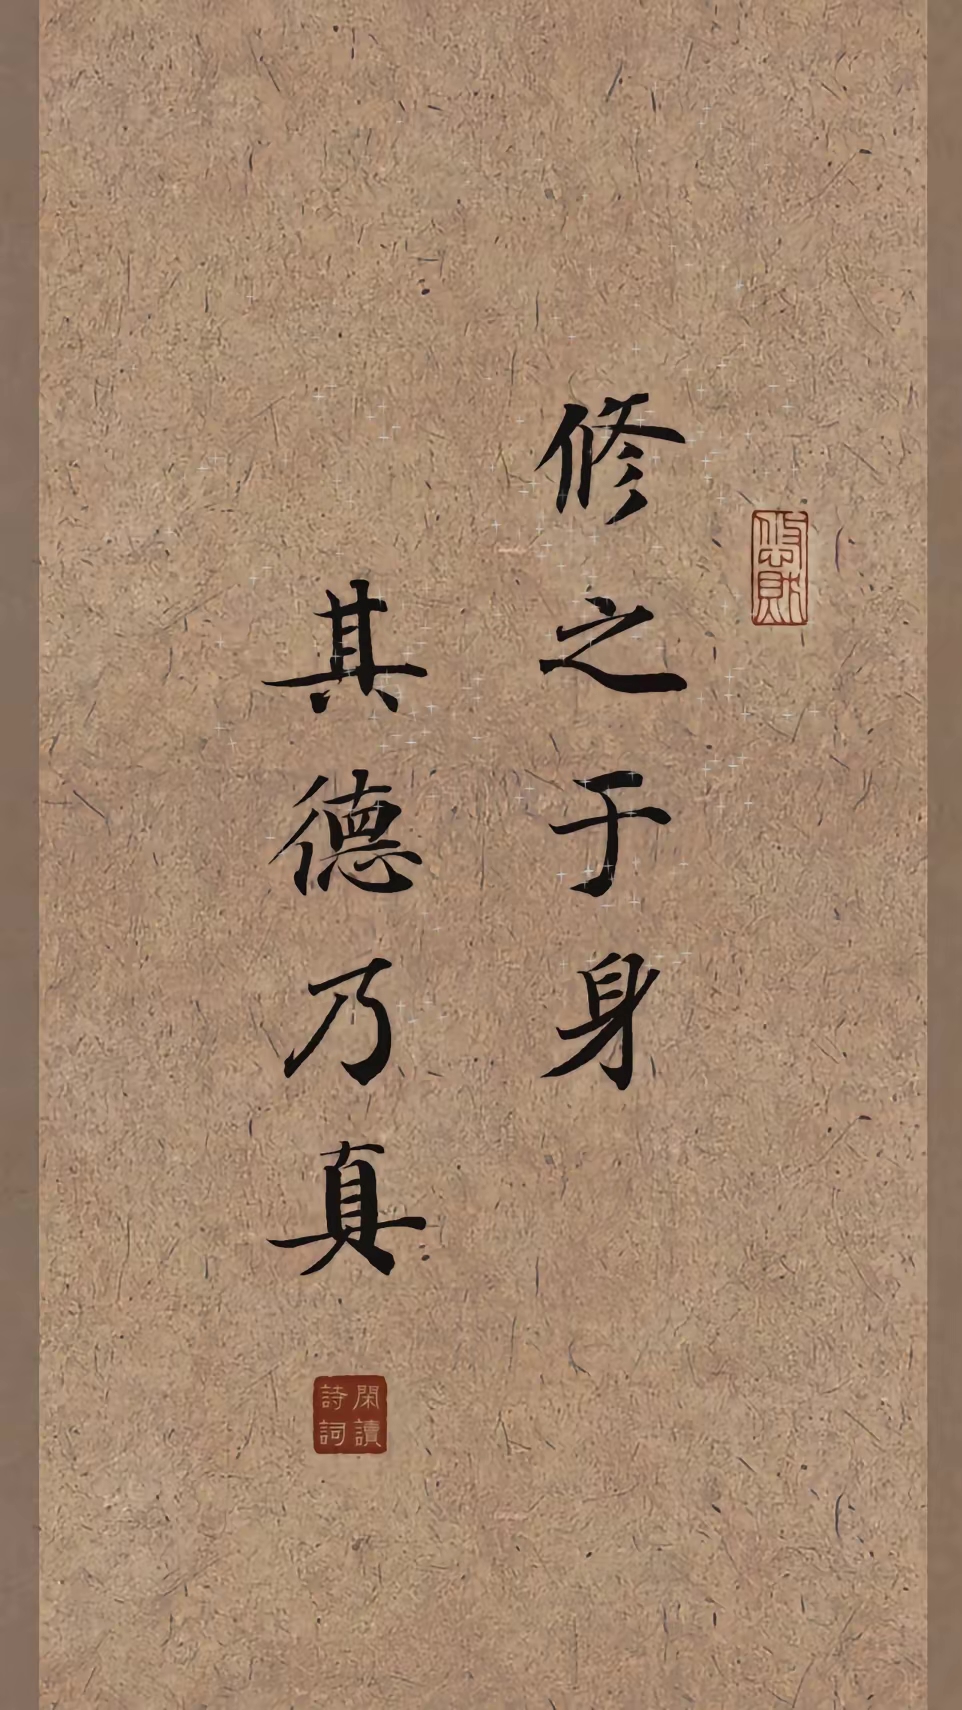 修之于身
其德乃真
閑讀
詩詞